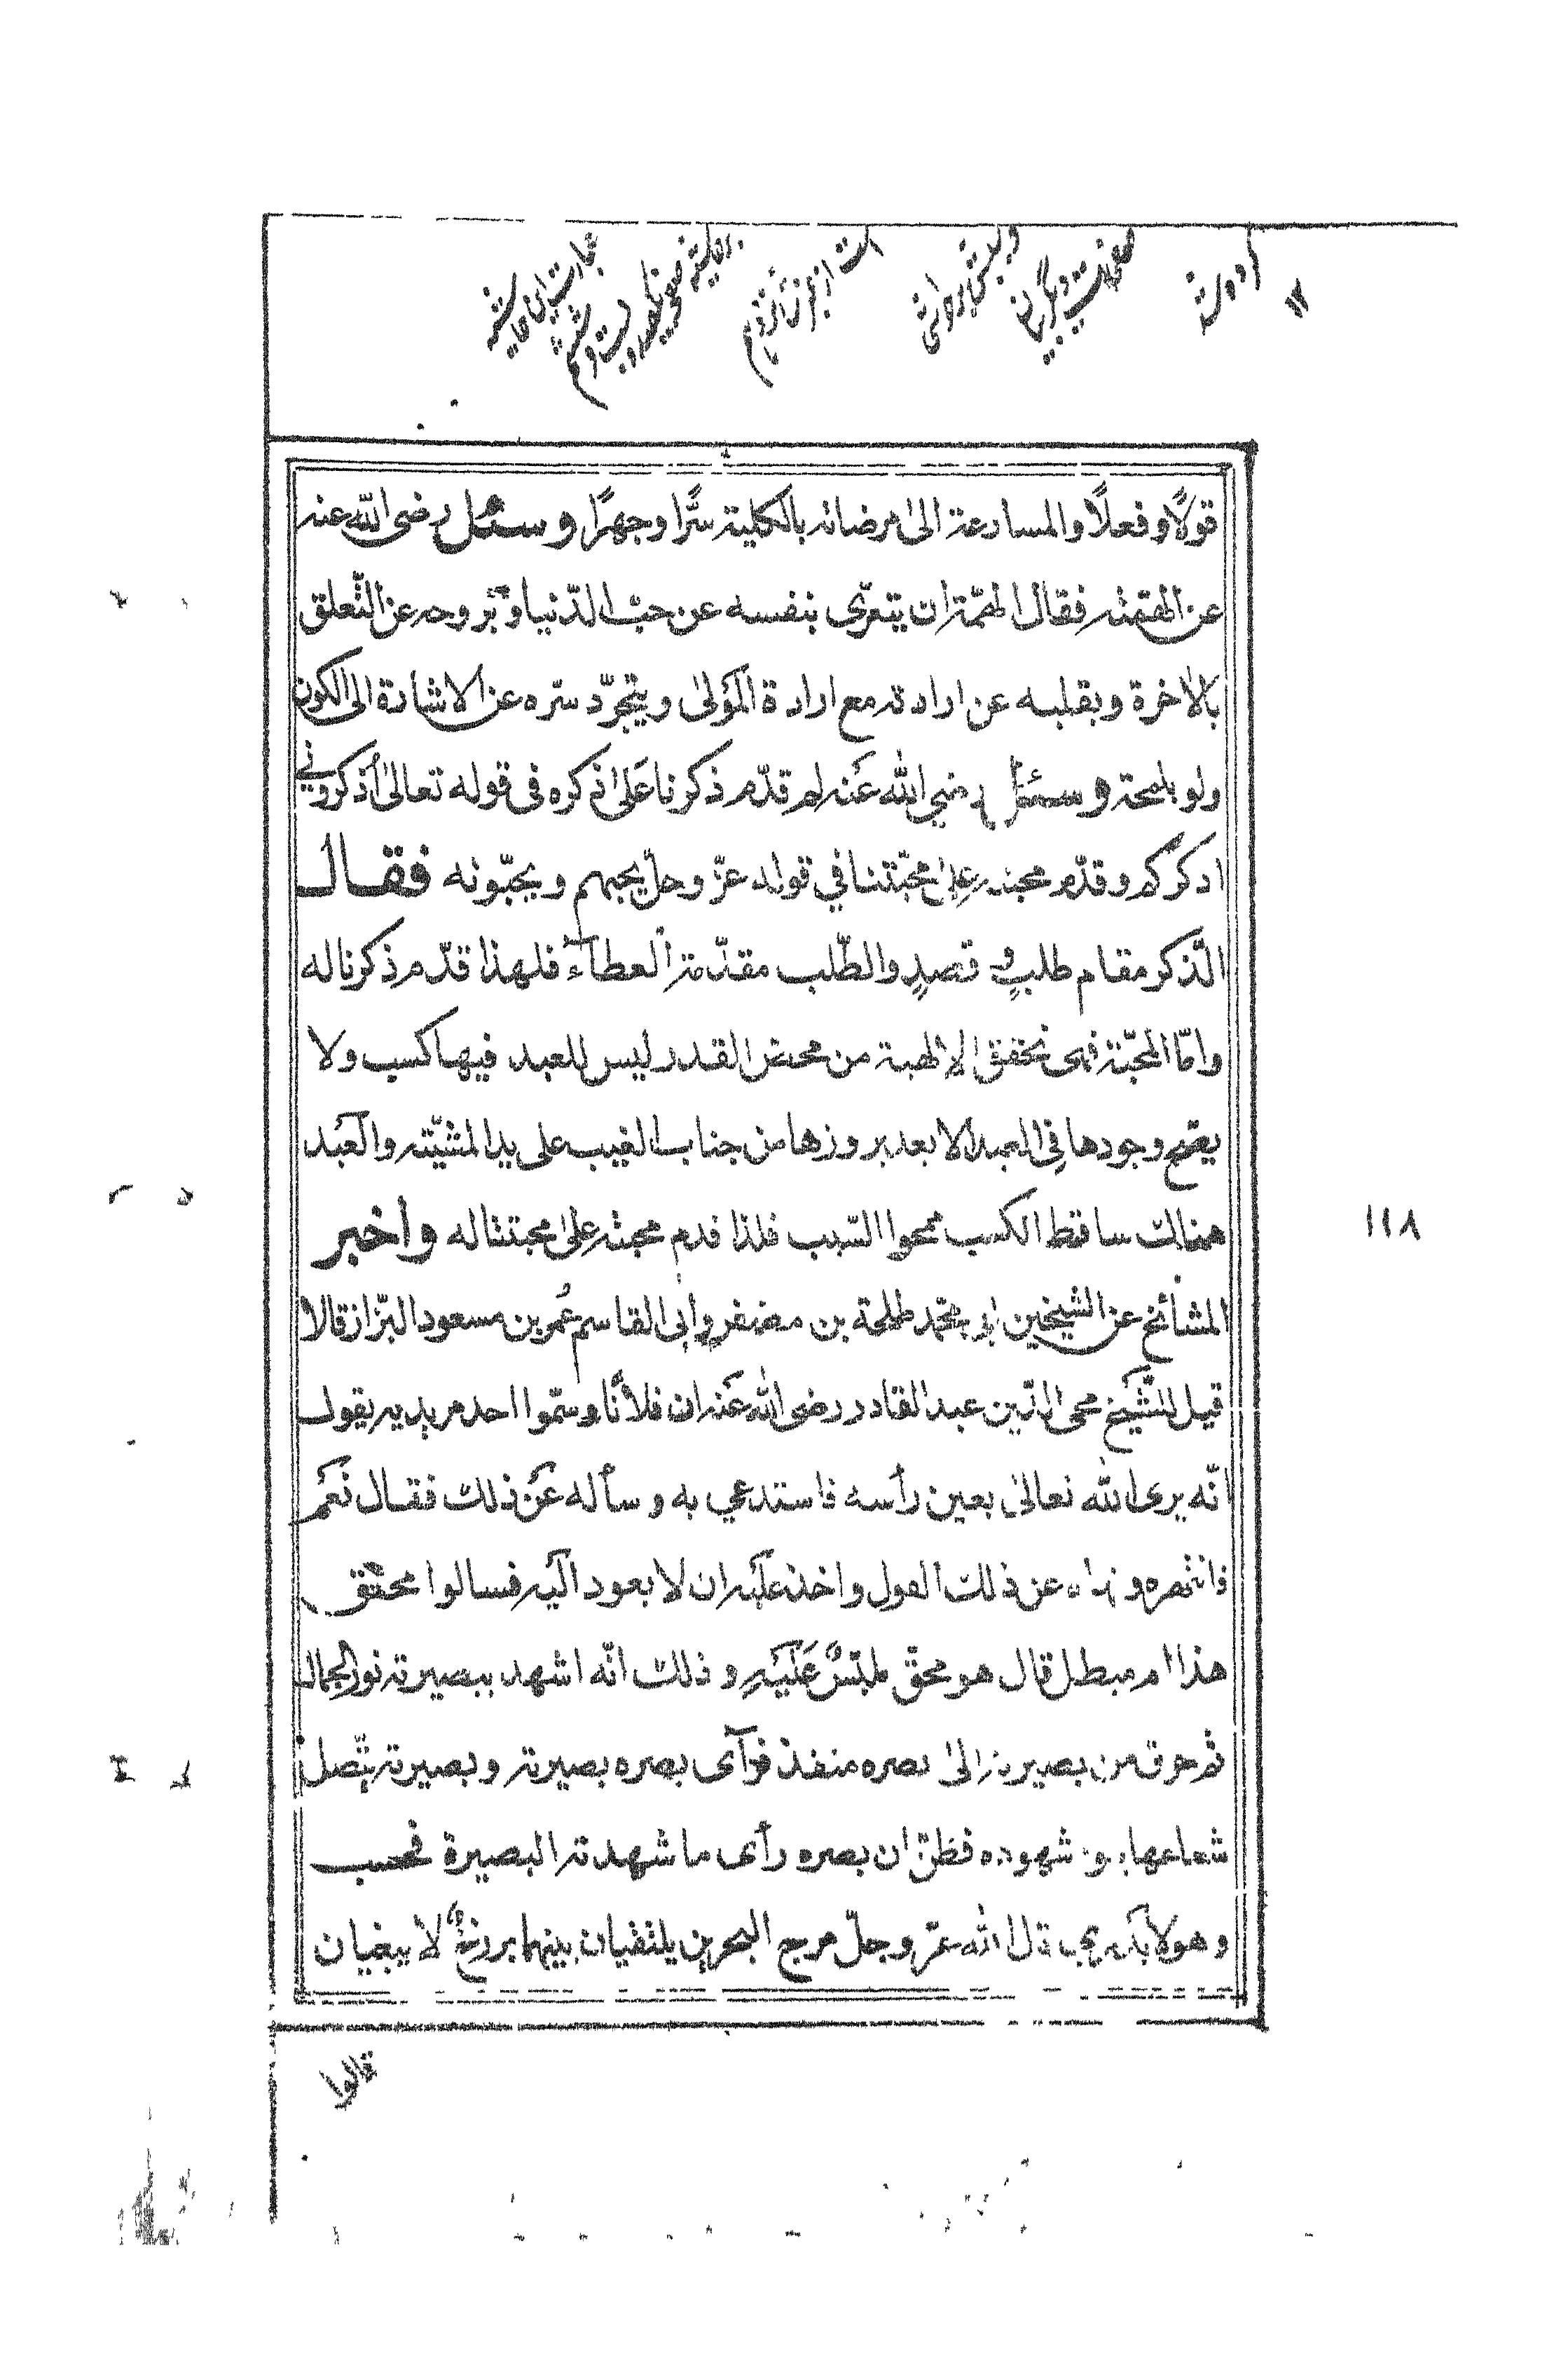 قولًا وفعلًا والمسارعة الىٰ مرضاته بالكلية سرًّا وجهرًا وسئل رضى اللّٰه عنه
عن الهمّة فقال الهمّة ان يتعرّى بنفسه عن حبّ الدّنيا وبروحه عن التّعلق
بالاٰخرة وبقلبه عن ارادته مع ارادة الْمَوْلىٰ ويتجرّد سرّه عن الاشارة الى الكون
ولو بلمحة وسئل رضي اللّٰه عَنه لم قدّم ذكرنا عَلىٰ ذكره فى قوله تعالىٰ أذكروني
اذكركم وقدّم محبته علىٰ محبّتنا في قوله عزّ وجلّ يحبهم ويحبّونه فقال
الذّكر مقام طلبٍ وقصدٍ والطّلب مقدّمة العطآء فلهذا قدّم ذكرنا له
وامّا المحبّة فهى تحفق الالهية من محض القدر ليس للعبد فيها كسب ولا
يقع وجودها فى العبد الا بعد بروزها من جناب الغيب على يد المشيّته والعَبد
هنالك ساقط الكسب ممحوا السّبب فلذا قدم محبته علىٰ محبتنا له واخبر
المشائخ عن الشيخين ابو محمّد طلحة بن مضفر وابى القاسم عُمر بن مسعود البزّاز قالا
قيل للشَّيخ محى الدّين عبد القادر رضى اللّٰه عَنه ان فلانًا وسمّوا احد مريديه يقول
انّه يرى اللّٰه تعالىٰ بعين رأسه فاستدعي به وسأله عَن ذلك فقال نَعَم
فانتهره ونهاه عن ذلك القول واخذ عليه ان لا يعود اليه فسالوا محقق
هذا ام مبطل قال هو محقّ ملبّسٌ عَلَيْهِ وذلك انّه اشهد ببصيرته نور الجمال
ثم خرق من بصيرته الىٰ بصره منفذ فرآى بصره بصيرته وبصيرته يتّصل
شعاعها بنور شهوده فظنّ ان بصره رأى ما شهدته البصيرة فحسب
وهو لا يدرى قال اللّٰه عزّ وجلّ مرج البحرين يلتقيان بينهما برزخٌ لا يبغيان
قالوا